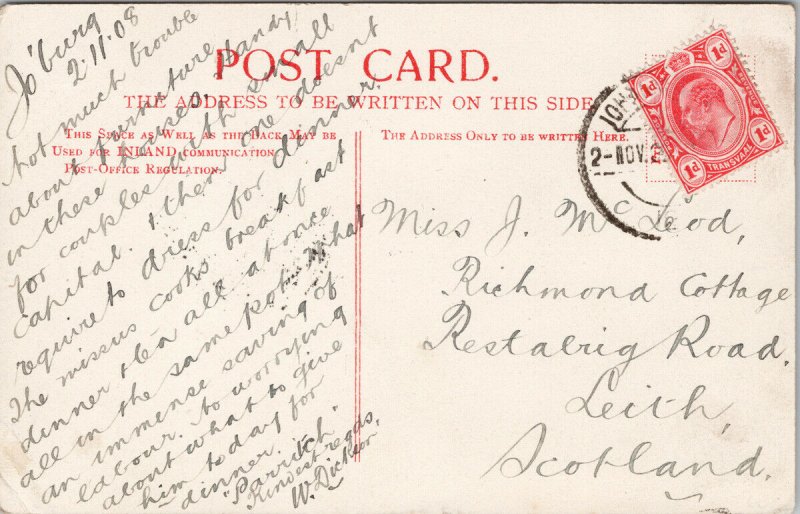 Jo'burg
2.11.08
Not much trouble
about furniture
in these houses. Handy
for couples with small
capital. & then one doesn't
require to dress for dinner.
The missus cooks breakfast
dinner & tea all at once
all in the same pot. What
an immense saving of
labour. No worrying
about what to give
him to day for
dinner. "Parritch"
Kindest regds.
W. Dickson.
POST CARD.
THE ADDRESS TO BE WRITTEN ON THIS SIDE
This Space as Well as the Back May be
Used for INLAND communication
Post-Office Regulation.
The Address Only to be written Here.
1d 1d
1d TRANSVAAL 1d
JOH
2-NOV.
Miss J. McLeod,
Richmond Cottage
Restalrig Road.
Leith,
Scotland.